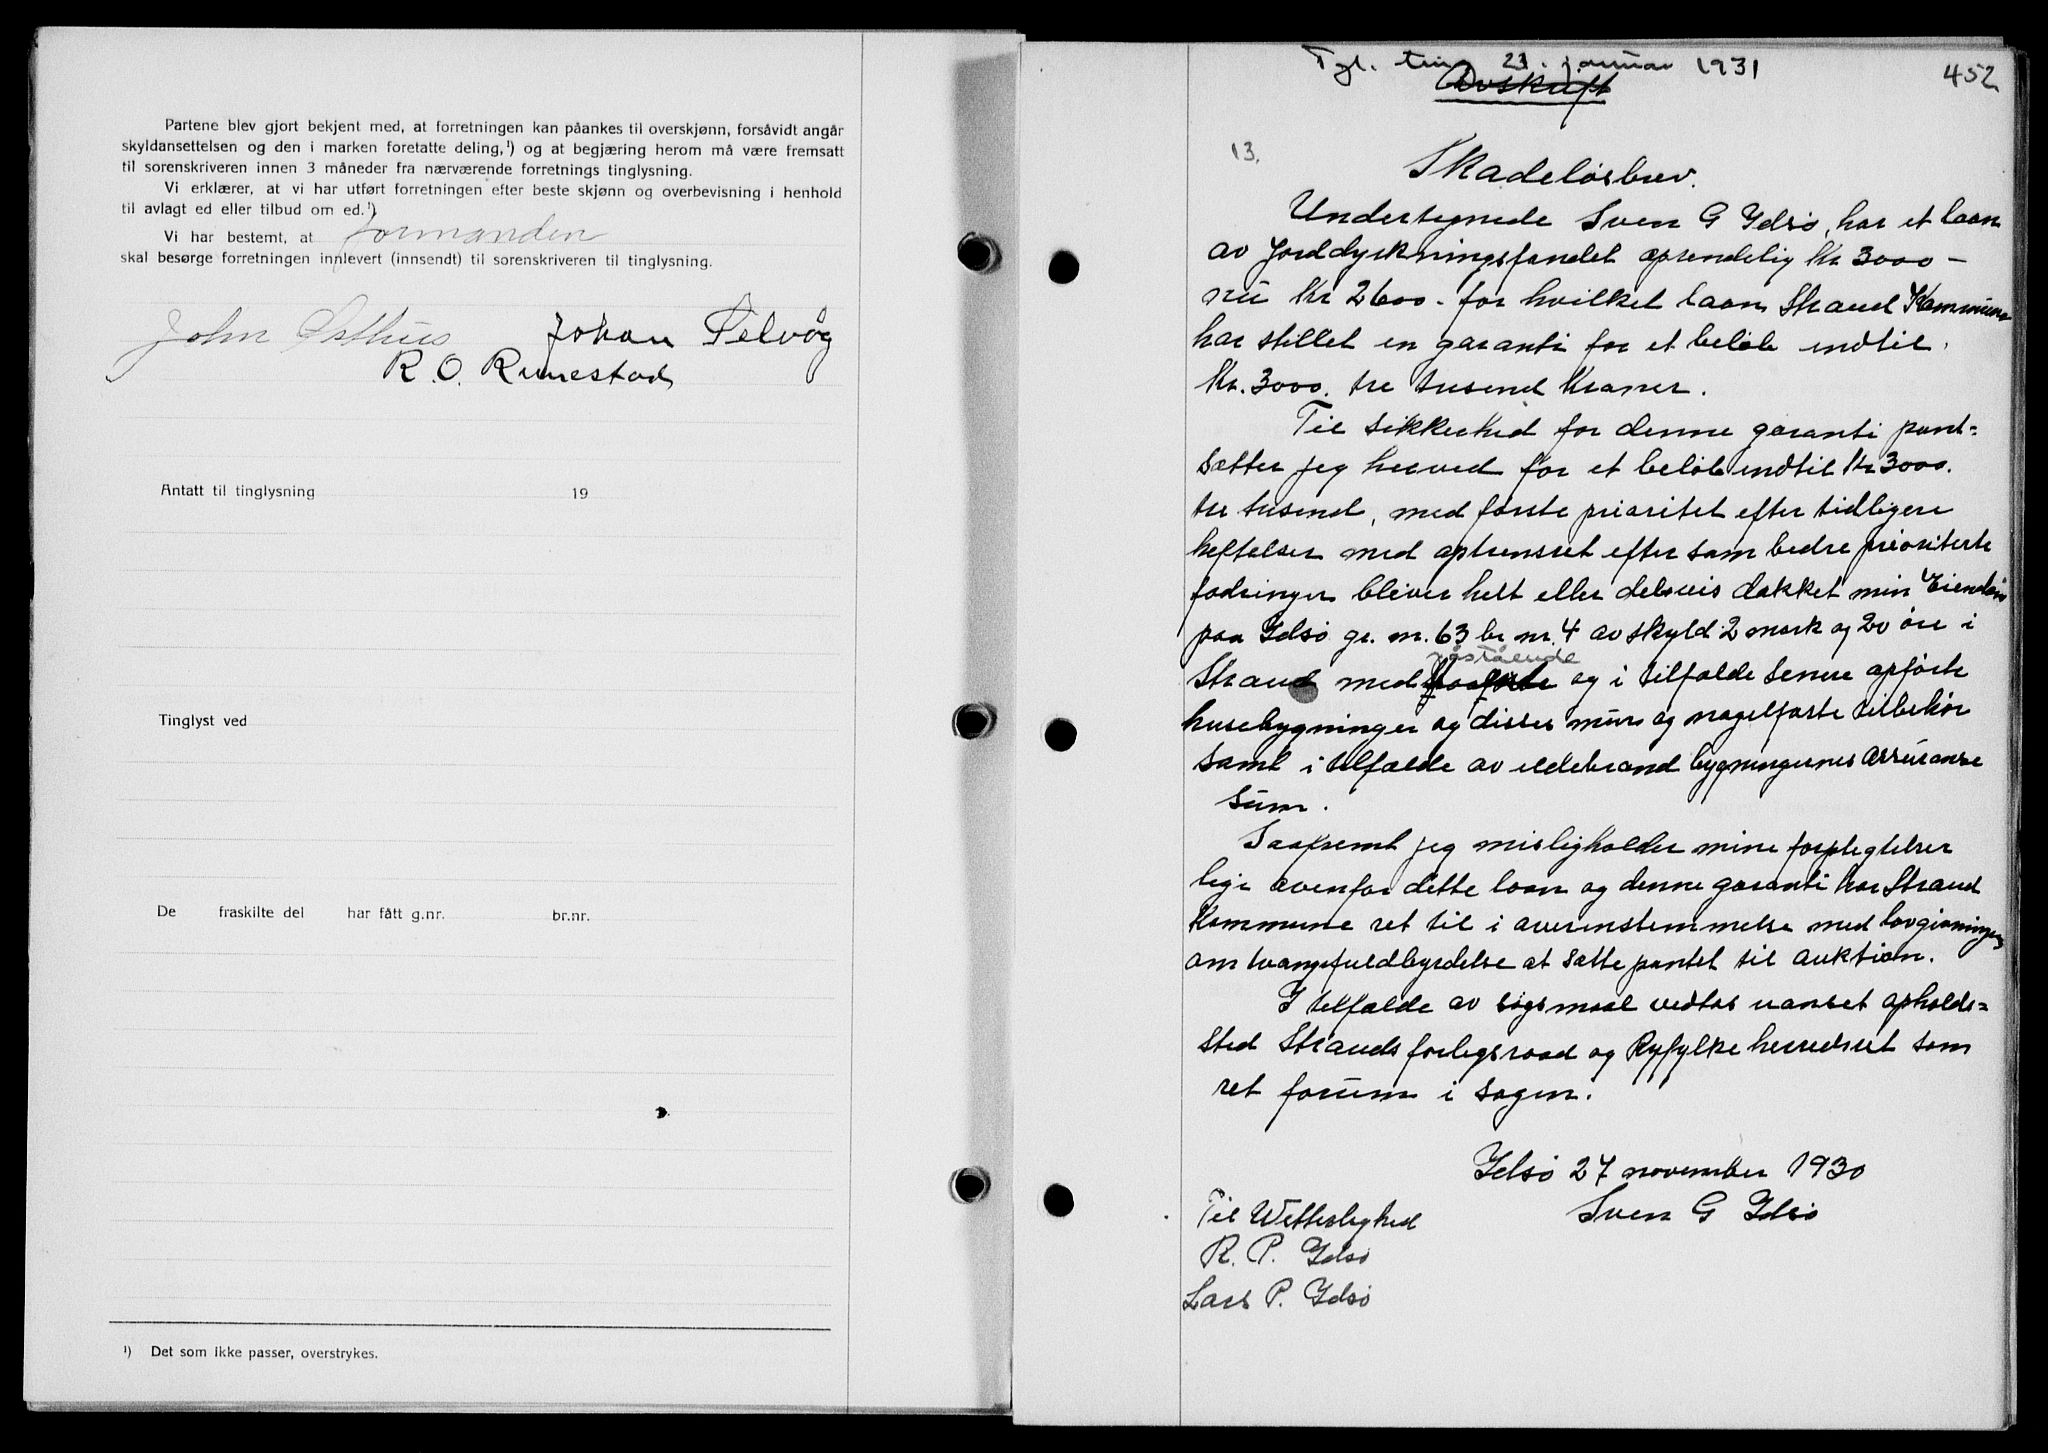 Partene blev gjort bekjent med, at forretningen kan påankes til overskjønn, forsåvidt angår
skyldansettelsen og den i marken foretatte deling,¹) og at begjæring herom må være fremsatt
til sorenskriveren innen 3 måneder fra nærværende forretnings tinglysning.
Vi erklærer, at vi har utført forretningen efter beste skjønn og overbevisning i henhold
til avlagt ed eller tilbud om ed.¹)
Vi har bestemt, at formanden
skal besørge forretningen innlevert (innsendt) til sorenskriveren til tinglysning.
John Østhus Johan Felvåg
R. O. Runestad
Antatt til tinglysning 19
Tinglyst ved
De fraskilte del har fått g.nr. br.nr.
¹) Det som ikke passer, overstrykes.
Tgl. ting 23. januar 1931
452
Avskrift
13.
Skadeløsbrev.
Undertegnede Sven G Idsø, har et laan
av Jorddyrkningsfondet oprendelig Kr 3000 -
nu Kr 2600 - for hvilket laan Strand Kommune
har stillet en garanti for et beløb indtil
Kr. 3000. tre tusend Kroner.
Til sikkerhed for denne garanti pant=
sætter jeg herved for et beløb indtil Kr 3000.
tre tusend, med første prioritet efter tidligere
heftelser med optrinsret efter som bedre prioriterte
fodringer bliver helt eller delsvis dækket min Eiendom
paa Idsø gr. nr. 63 br nr. 4 av skyld 2 mark og 20 øre i
påstående
Strand med og i tilfælde senere opførte
husebygninger og disses mur og nagelfaste tilbehør
samt i tilfælde av ildebrand bygningernes assuranse
sum.
Saafremt jeg misligholder mine forplegtelser
lige ovenfor dette laan og denne garanti har Strand
Kommune ret til i overenstemmelse med lovgivningen
om tvangsfuldbyrdelse at sætte pantet til auktion.
I tilfælde av søgsmaal vedtas uanset opholds=
sted Strands forligsraad og Ryfylke herredsret som
ret forum i sagen.
Idsø 27 november 1930
Sven G Idsø
Til Vitterlighed
R. P. Idsø
Lars P. Idsø